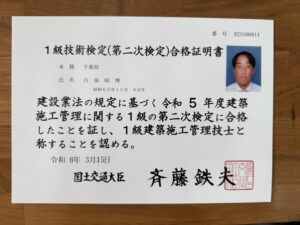 番 号
1級技術検定(第二次検定)合格証明書
本 籍 千葉県
氏 名
昭和60年12月 9日生
建設業法の規定に基づく令和 5 年度建築
施工管理に関する1級の第二次検定に合格
したことを証し、1級建築施工管理技士と
称することを認める。
令和 6年 3月15日
国土交通大臣 斉藤鉄夫